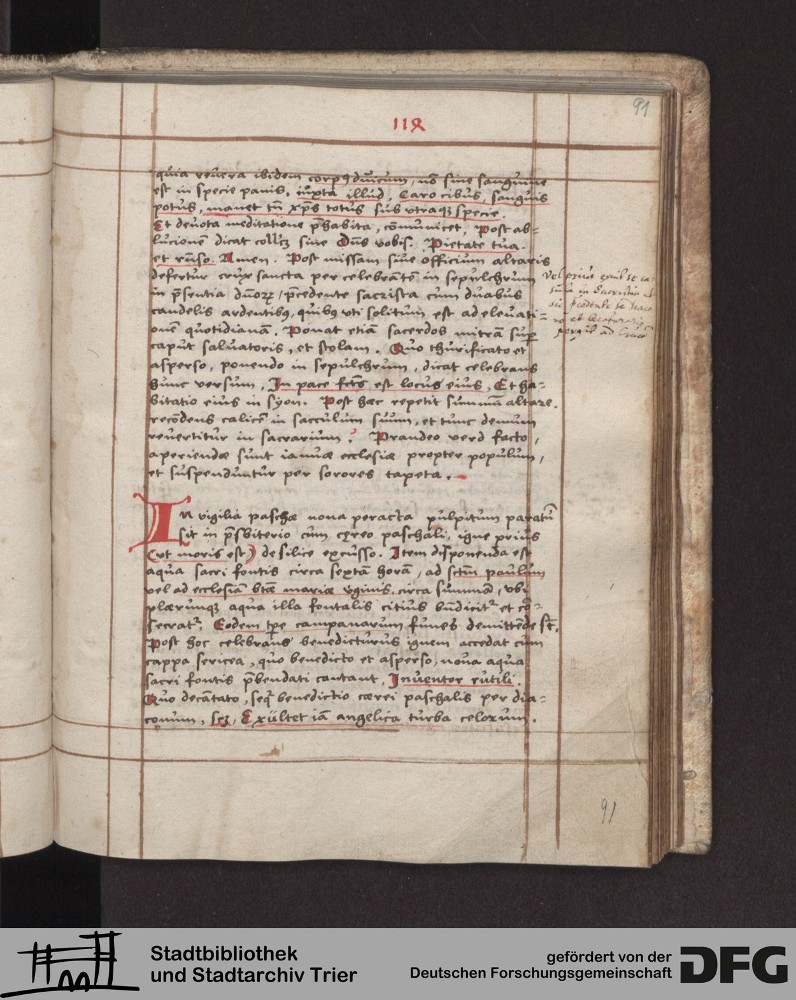 91
119
quia revera ibidem corpꝰ dn̄icum, nō sine sanguine
est in specie panis, iuxta illud, Caro cibus, sanguis
potus, manet tn̄ xp̄s totus sub utraq3 specie.
Et devota meditatione p̄habita, cōmunicet, Post ab=
lucionem dicat coll'cā sine Dn̄s vobis. Pietate tua.
et rn̄so. Amen. Post missam sive officium altaris
defertur crux sancta per celebrantē in sepulchrum
in p̄sentia dnōrꝝ, p̄cedente sacrista cum duabus
candelis ardentibꝰ, quibꝰ uti solitum est ad elevati=
onē quotidianā. Ponat etiā sacerdos mitrā suꝑ
caput salvatoris, et stolam. Quo thurificato et
asperso, ponendo in sepulchrum, dicat celebrans
hunc versum, In pace fct̄s est locus eius, Et ha=
bitatio eius in syon. Post hæc repetit summū altare.
recōdens calicē in sacculum suum, et tunc demum
revertitur in sacrarium. Prandeo verò facto,
aperiendæ sunt ianuæ ecclesiæ propter populum,
et suspenduntur per sorores tapeta.
Vel prius
In vigilia paschæ nona peracta pulpitum paratū
sit in p̄sbiterio cum cereo paschali, igne prius
(ut moris est) de silice excusso. Item disponenda est
aqua sacri fontis circa sextā horā, ad sctm̄ paulum
vel ad ecclesiā btǣ mariæ vginis, circa summā, ubi
plærunq3 aqua illa fontalis citius bn̄dicitr et cō=
secratr. Eodem tp̄e campanarum funes demittēde st̄,
Post hoc celebrans benedicturus ignem accedat cum
cappa sericea, quo benedicto et asperso, nova aqua
sacri fontis p̄bendati cantant, Inventor rutili.
Quo decātato, seqr̄ benedictio cærei paschalis per dia=
conum, scꝫ, Exultet iā angelica turba celorum.
91
Stadtbibliothek
und Stadtarchiv Trier
gefördert von der
Deutschen Forschungsgemeinschaft
DFG